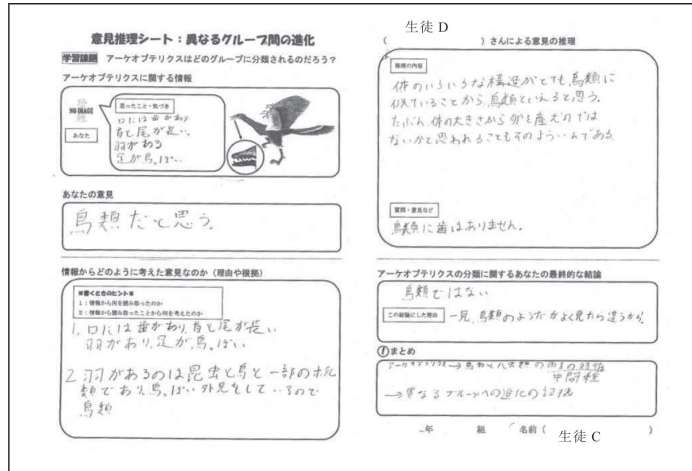 意見推理シート：異なるグループ間の進化
学習課題 アーケオプテリクスはどのグループに分類されるのだろう？
アーケオプテリクスに関する情報
NO IMAGE
あなた
思ったこと・気づき
口には歯があり
首と尾が長い。
羽がある
足が鳥っぽい
あなたの意見
鳥類だと思う。
情報からどのように考えた意見なのか（理由や根拠）
※書くときのヒント※
1：情報から何を読み取ったのか
2：情報から読み取ったことから何を考えたのか
1. 口には歯があり、首と尾が長い
羽があり、足が鳥っぽい
2 羽があるのは昆虫と鳥と一部のホ乳
類であり、鳥っぽい外見をしているので
鳥類
生徒 D
（ ）さんによる意見の推理
推理の内容
体のいろいろな構造がとても鳥類に
似ていることから、鳥類といえると思う。
ただし、体の大きさから卵を産むのでは
ないかと思われることもそのよういんである
質問・意見など
鳥類に歯はありません。
アーケオプテリクスの分類に関するあなたの最終的な結論
鳥類ではない
この結論にした理由
一見、鳥類のようだがよく見たら違うから。
①まとめ
アーケオプテリクス→鳥類とハ虫類の
中間種
→異なるグループへの進化の証拠
年 組 名前（ 生徒 C ）